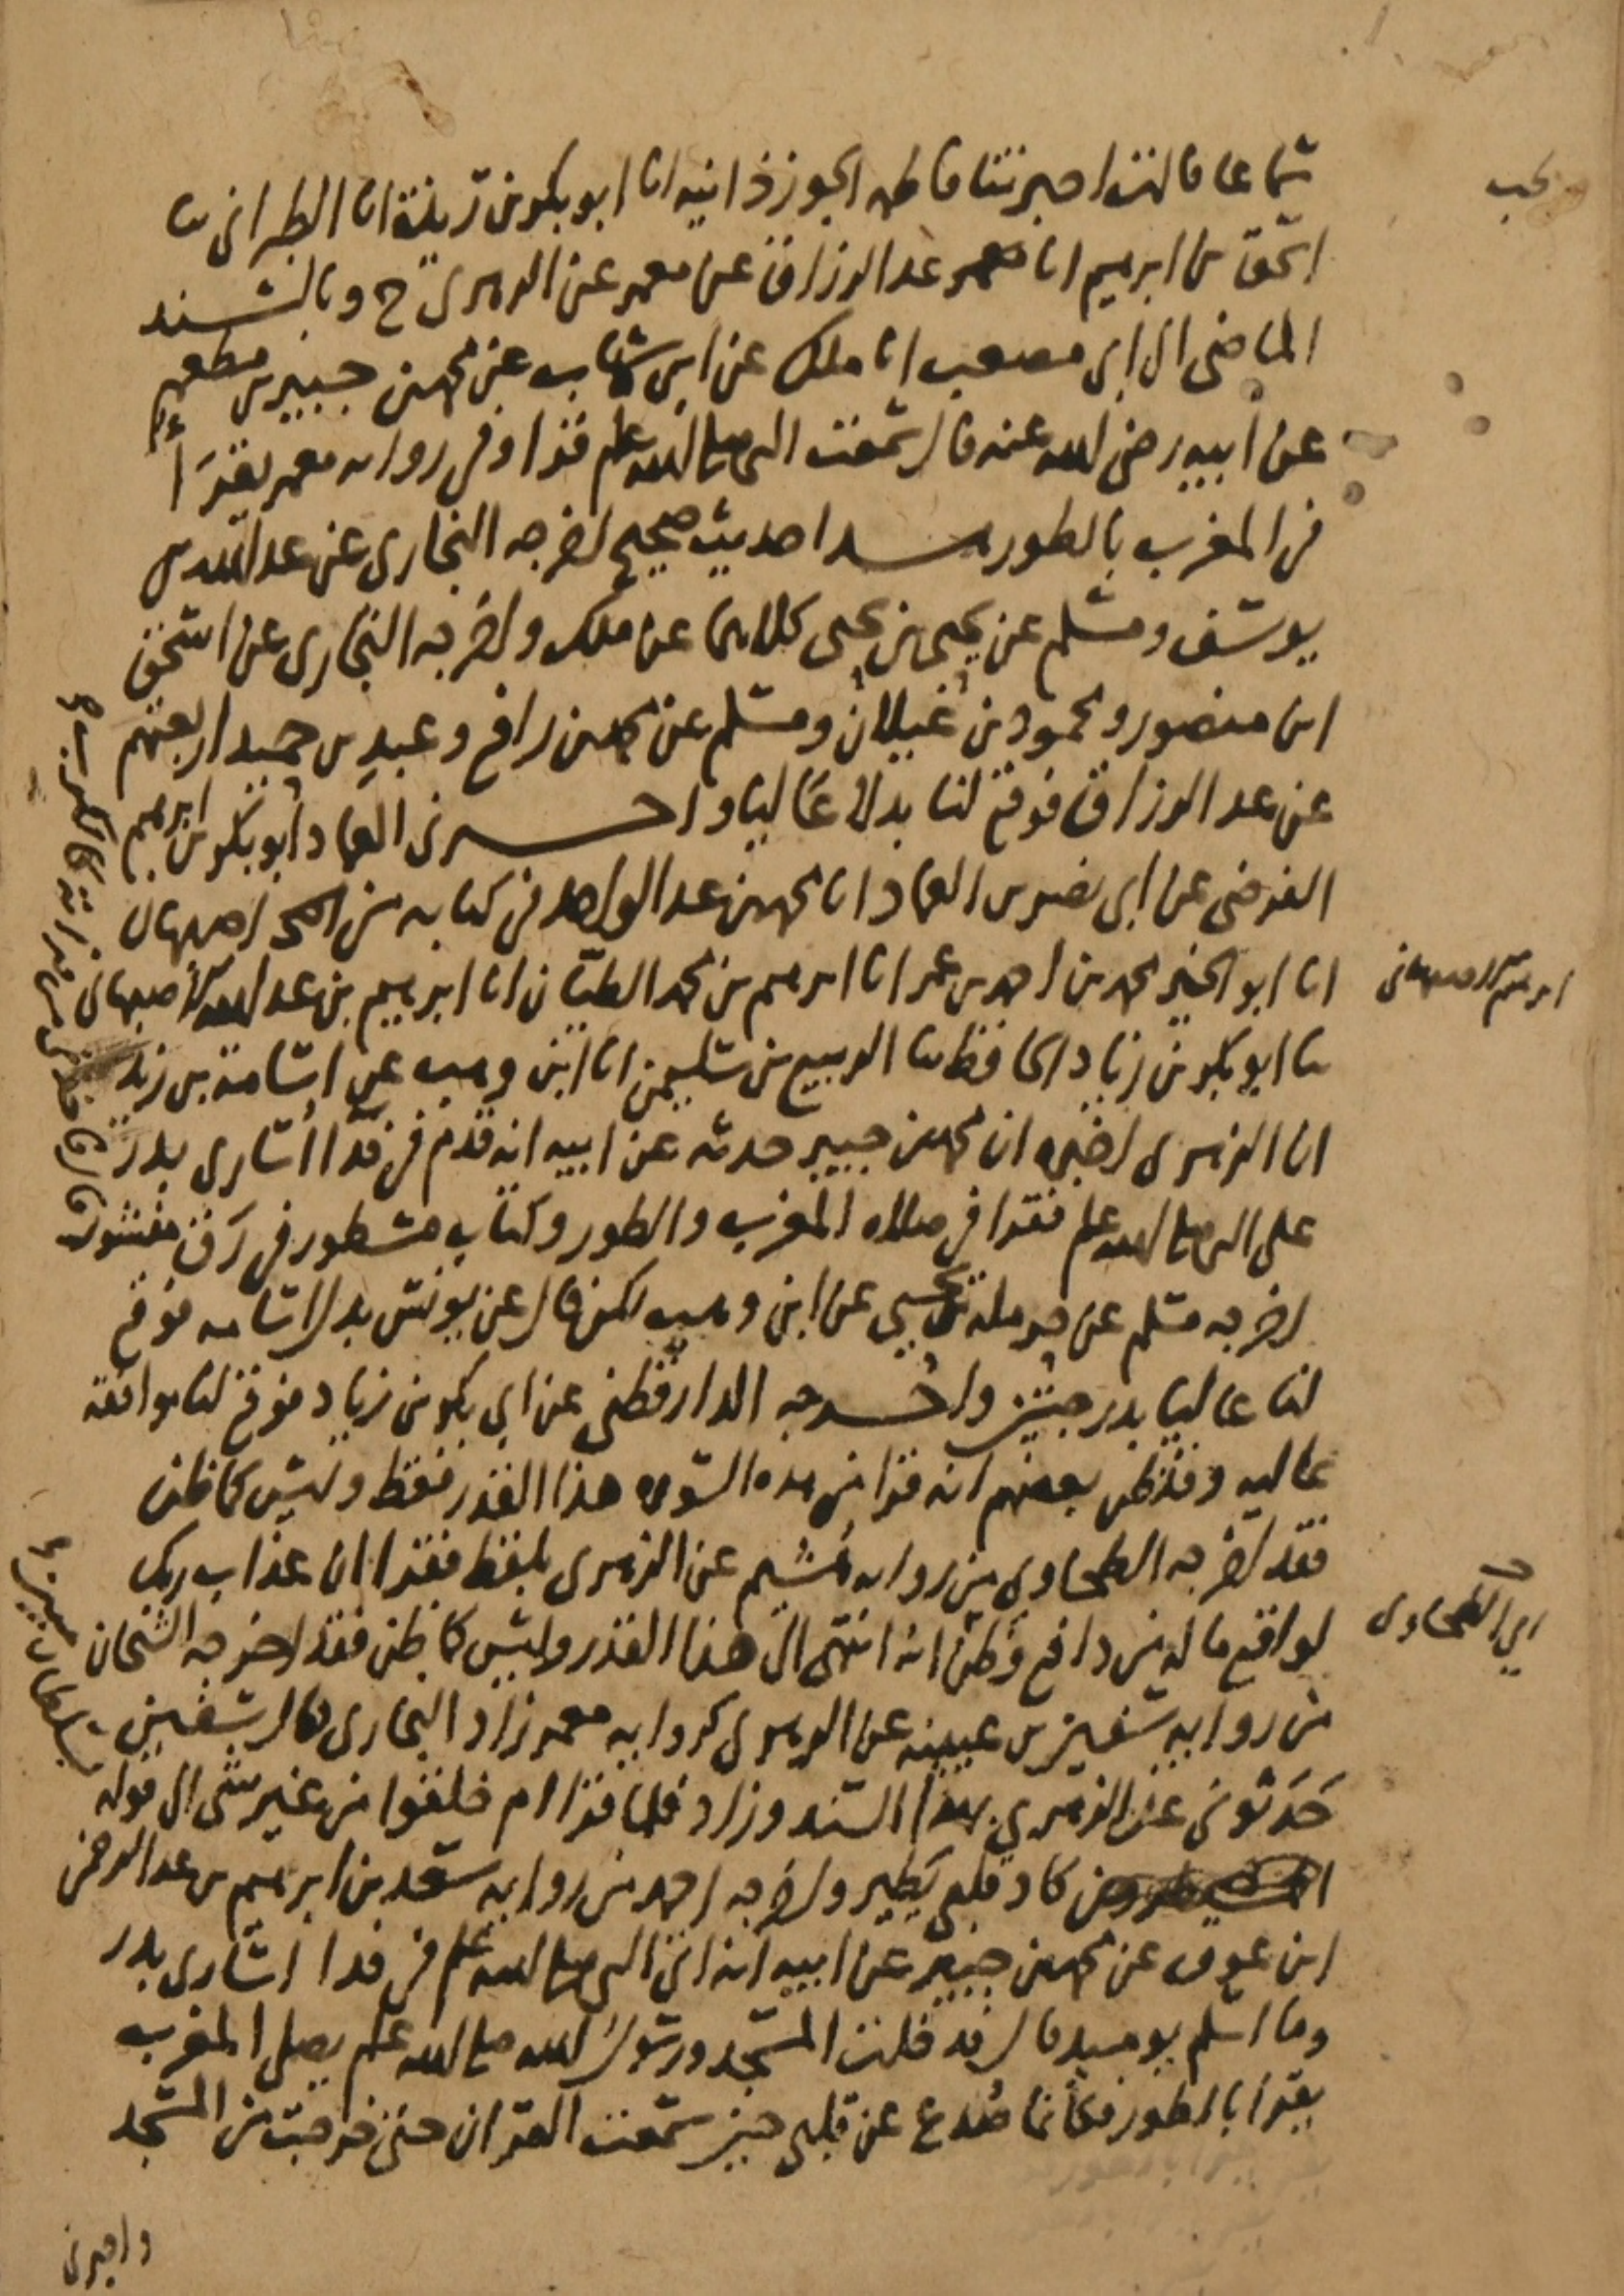 سماعا قالت اخبرتنا فاطمه الجوزذانيه انا ابو بكر بن ريذة انا الطبرانى ثنا
اسحق بن ابرهيم انا عبد الرزاق عن معمر عن الزهرى ح وبالسند
الماضى الى ابى مصعب انا ملك عن ابن شهاب عن محمد بن جبير بن مطعم
عن ابيه رضى الله عنه قال سمعت النبى صلى الله عليه وسلم قرا وفى روايه معمر يقرَأ
فى المغرب بالطور هذا حديث صحيح اخرجه البخارى عن عبد الله بن
يوسف ومسلم عن يحيى بن يحيى كلاهما عن ملك واخرجه البخارى عن اسحق
ابن منصور ومحمود بن غيلان ومسلم عن محمد بن رافع وعبد بن حميد اربعتهم
عن عبد الرزاق فوقع لنا بدلا عاليا واخبرنى العماد ابو بكر بن ابرهيم
الفرضى عن ابى نصر بن العماد انا محمد بن عبد الواحد فى كتابه من اصبهان
انا ابو الخير محمد بن احمد بن عمر انا ابرهيم بن محمد الطيان انا ابرهيم بن عبد الله الاصبهانى
ثنا ابو بكر بن زياد الحافظ ثنا الربيع بن سليمن انا ابن وهب عن اسامة بن زيد
ان الزهرى اخبره ان محمد بن جبير حدثه عن ابيه انه قدم فى فدا اسارى بدر
على النبى صلى الله عليه وسلم فقرا فى صلاه المغرب والطور وكتاب مسطور فى رَق منشور
اخرجه مسلم عن حرملة بن يحيى عن ابن وهب لكن قال عن يونس بدل اسامه فوقع
لنا عاليا بدرجتين واخرجه الدارقطنى عن ابى بكر بن زياد فوقع لنا موافقه
عاليه وقد ظن بعضهم انه قرا من هذه السوره هذا القدر فقط وليس كما ظن
فقد اخرجه الطحاوى من روايه هُشيم عن الزهرى بلفظ فقرا ان عذاب ربك
لواقع ما له من دافع وظن انه انتهى الى هذا القدر وليس كما ظن فقد اخرجه الشيخان
من روايه سفين بن عيينه عن الزهرى كروايه معمر زاد البخارى قال سفين
حَدثونى عن الزهرى بهذا السند وزاد فلما قرا ام خلقوا من غير شى الى قوله
المسيطرون كاد قلبى يطير واخرجه احمد من روايه سعد بن ابرهيم بن عبد الرحمن
ابن عوف عن محمد بن جبير عن ابيه انه اتى النبى صلى الله عليه وسلم فى فدا اسارى بدر
وما اسلم يوميذ قال فدخلت المسجد ورسول الله صلى الله عليه وسلم يصلى المغرب
يقرا بالطور فكأنما صُدع عن قلبى حين سمعت القران حتى خرجت من المسجد
واخبرنى
ابرهيم الاصبهانى
اى الطحاوى